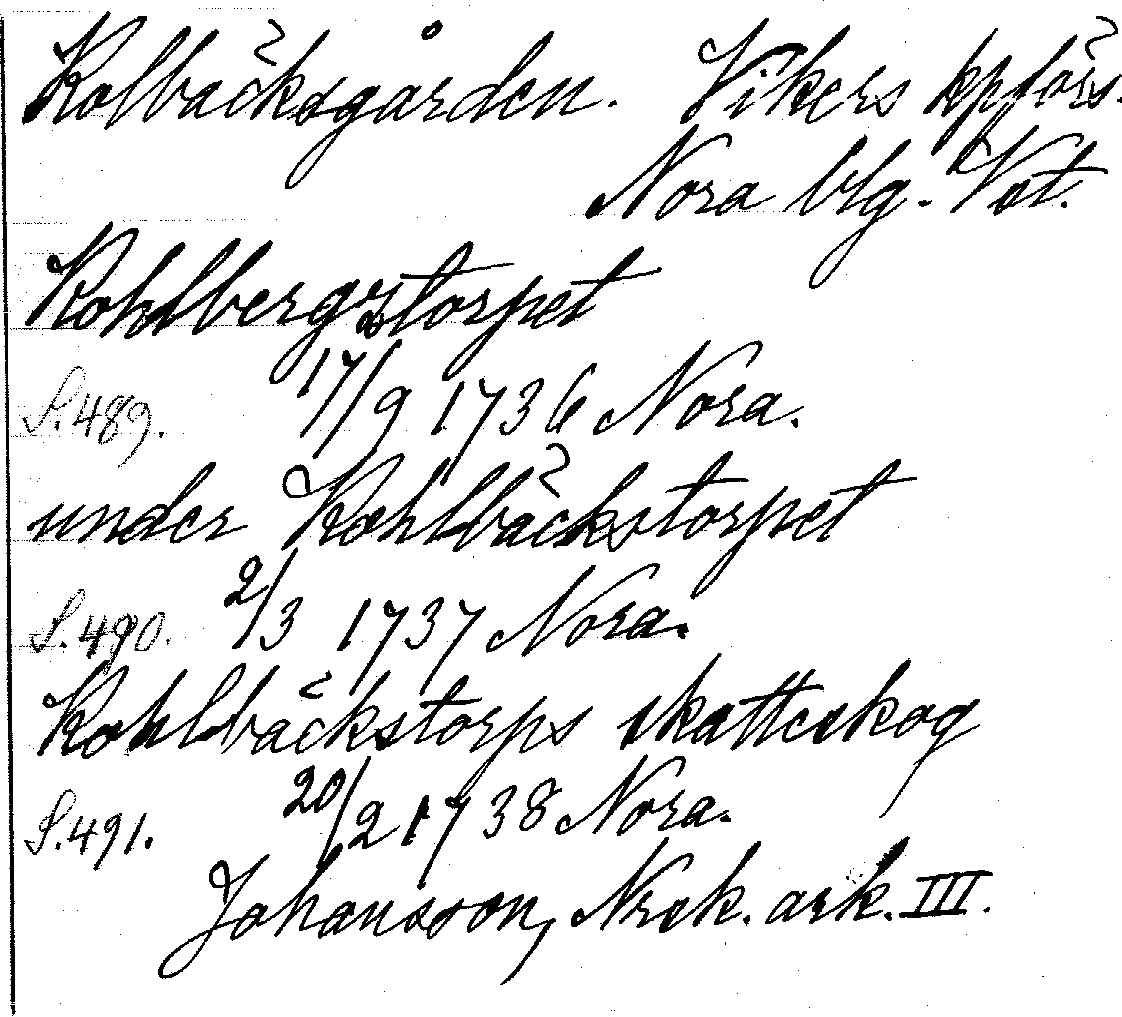 Kolbäcksgården. Vikers kpförs.
Nora blg. Vst.
Kohlbergstorpet
S. 489. 17/9 1736 Nora.
under Kohlbäckstorpet
S. 490. 2/3 1737 Nora.
Kohlbäckstorps skatteskog
S. 491. 20/2 1738 Nora.
Johansson, Nrek. ark. III.